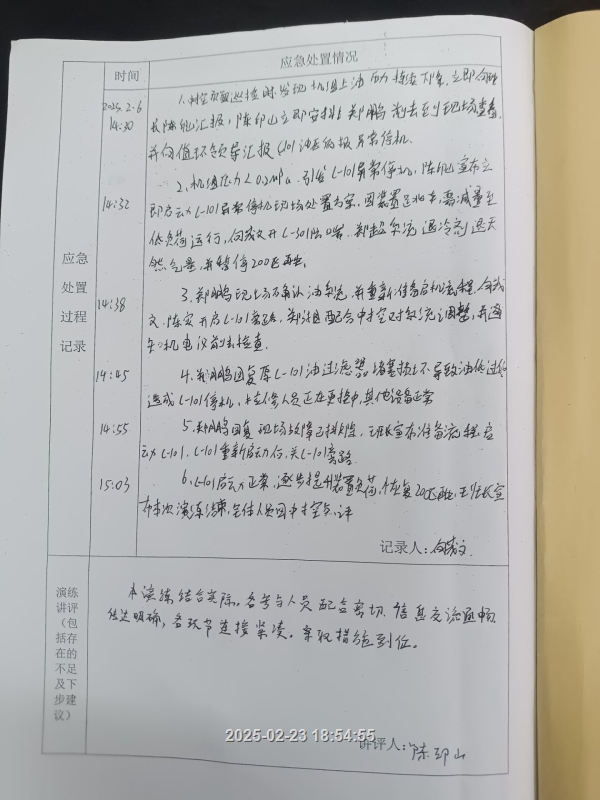 应急处置情况
时间
应急
处置
过程
记录
2025.2.6
14:30
1.中控员巡检时发现机组上油压力持续下降,立即向班
长陈 汇报,陈印山立即安排郑鹏前去到现场查看,
并向值班领导汇报C101油压低报异常停机。
14:32
2.机组压力<0.2MPa.引发C-101异常停机,陈 宣布立
即启动C-101异常停机现场处置方案,因装置 需减量至
低负荷运行,向成文开C-301 ,郑超 退冷剂退天
然气量,并暂停200 。
14:38
3.郑鹏现场确认油 ,并重新准备启机流程,向成
文、陈 开启C-101旁路,郑 配合中控对 调整,并通
知机电仪前去检查.
14:45
4.郑鹏回复原C-101油过滤器堵塞 导致油 过
造成C-101停机,检修人员正在更换中,其他设备正常
14:55
5.郑鹏回复现场故障已排除,班长宣布准备流程启
动C-101,C-101重新启动后,关C-101旁路.
15:03
6.C-101启动正常,逐步提升装置负荷,恢复 ,班长宣
布本次演练结束,全体人员回中控室点评
记录人:向成文
演练
讲评
(包
括存
在的
不足
及下
步建
议)
本演练结合实际,各参与人员配合密切,信息交流通畅
传达明确,各环节连接紧凑。采取措施到位。
讲评人:陈印山
2025-02-23 18:54:55